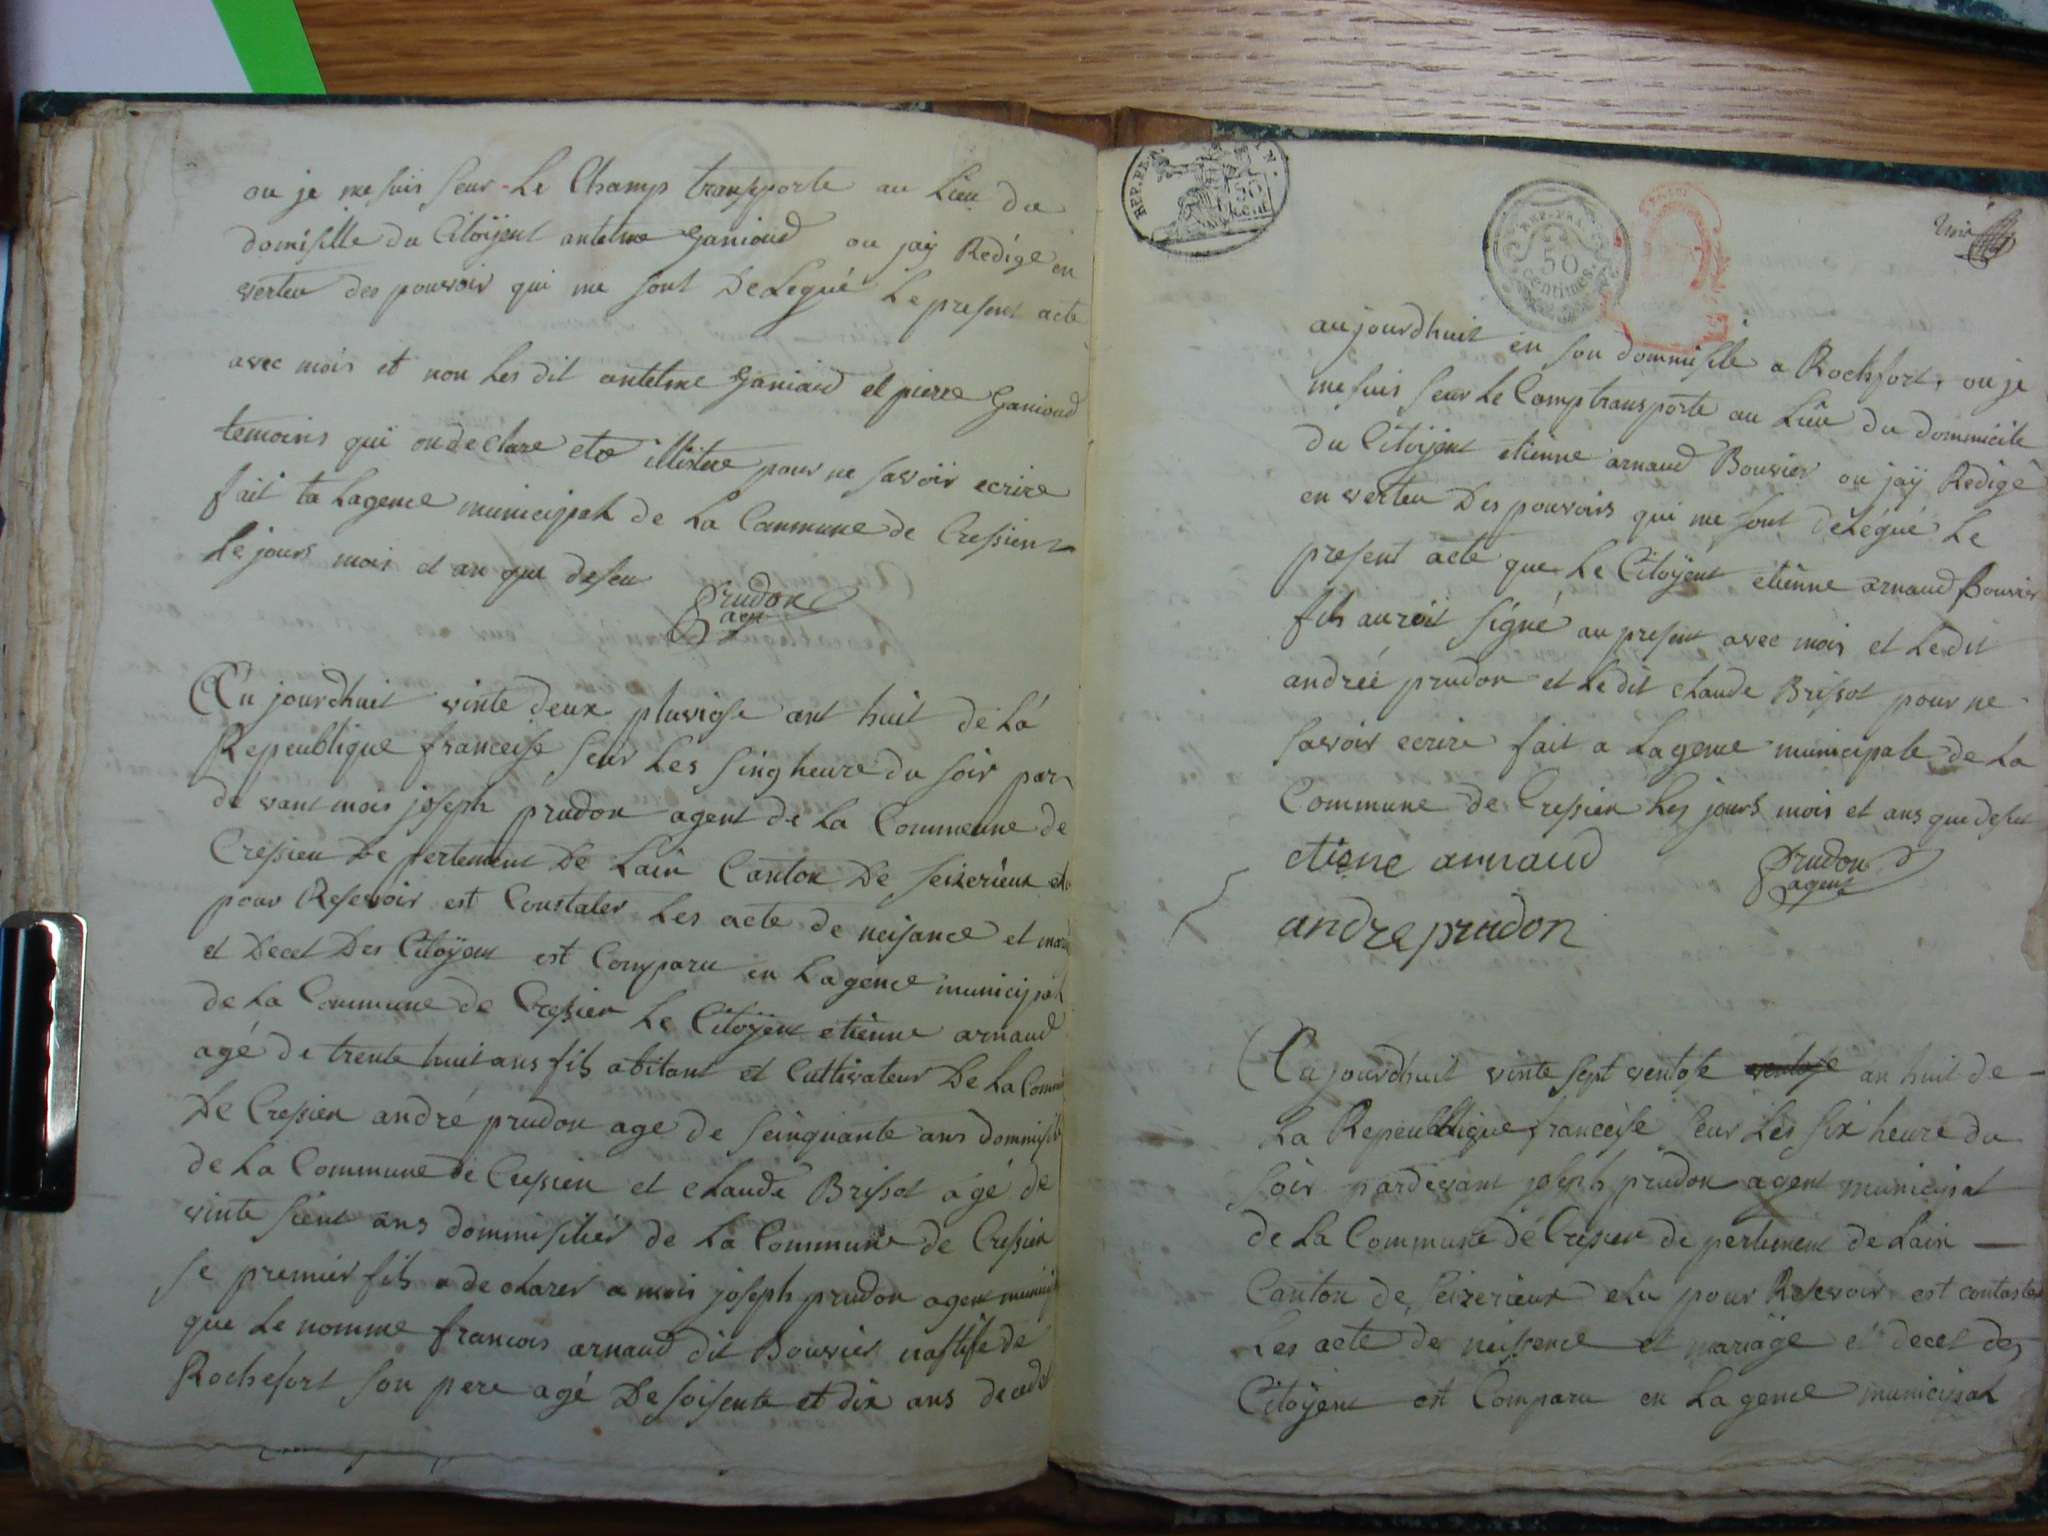 ou je me suis seur Le Champ transporte au Lieu du
domisille du Citoÿent antelme Ganioud ou jaÿ Redigé en
verteu des pouvoir qui me sont deLegué Le present acte
avec mois et non Les dit antelme Ganioud et pierre Ganioud
temoins qui on declare etre illiteree pour ne savoir ecrire
fait ta Lagence municipal de La Commune de Cressien
le jours mois et an que deseu
Prudon
agen
Au jourdhuit vinte deux pluviose ant huit de La
Repeublique franceise seur Les sinq heure du soir par
devant mois joseph prudon agent de La Commeune de
Cressien De pertement De Lain Canton De seizerieux elu
pour Resevoir est Constater Les acte de neisance et
et Decet Des Citoÿent est Comparu en Lagence municipal
de La Commune de Cressien Le Citoÿent etienne arnaud
agé de trente huit ans fils abitant et Cultivateur De La Comm
De Cressien andré prudon age de seinquante ans dommisil
de La Commune de Cressien et claude Brissot agé de
vinte sient ans dommisilier de La Commune de Cressien
se premier fils a declarer a mois joseph prudon agent munici
que Le nomme francois arnaud dit Bouvier natife de
Rochefort son pere agé De soisente et dix ans decede
REP. FRA.
50
cent
REP. FRA.
50
centimes
aujourdhuit en son dommisile a Rochfort, ou je
me suis seur Le Camp transporte au Lieu du dommicile
du Citoÿent etienne arnaud Bouvier ou jaÿ Redigé
en verteu Des pouvoirs qui me sont deLégué Le
present acte que Le Citoÿent etienne arnaud Bouvier
fils auroit signé au present avec mois et Le dit
andréé prudon et Le dit claude Brissot pour ne
savoir ecrire fait a Lagence municipale de La
Commune de Cressien Les jours mois et ans que deseu
etiene arnaud
Prudon
agent
andre prudon
Au jourdhuit vinte sept ventose ventose an huit de
La Repeublique franceise seur Les six heure du
soir pardevant joseph prudon agent municipal
de La Commune de Cressien de pertement de Lain
Canton de seizerieux elu pour Resevoir est contaster
Les acte de neissence et mariage et decet des
Citoÿent est Comparu en Lagence municipal